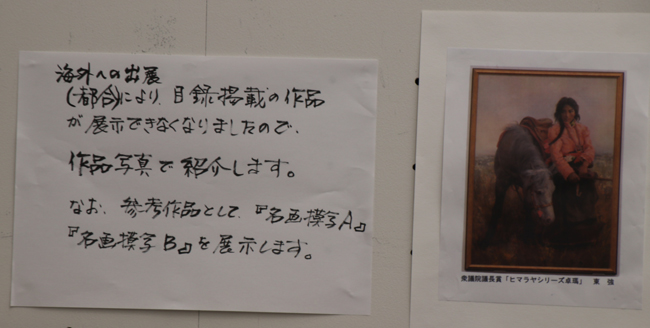 海外への出展
(都合)により、目録掲載の作品
が展示できなくなりましたので、
作品写真で紹介します。
なお、参考作品として、『名画模写A』
『名画模写B』を展示します。
衆議院議長賞「ヒマラヤシリーズ卓瑪」 東 強